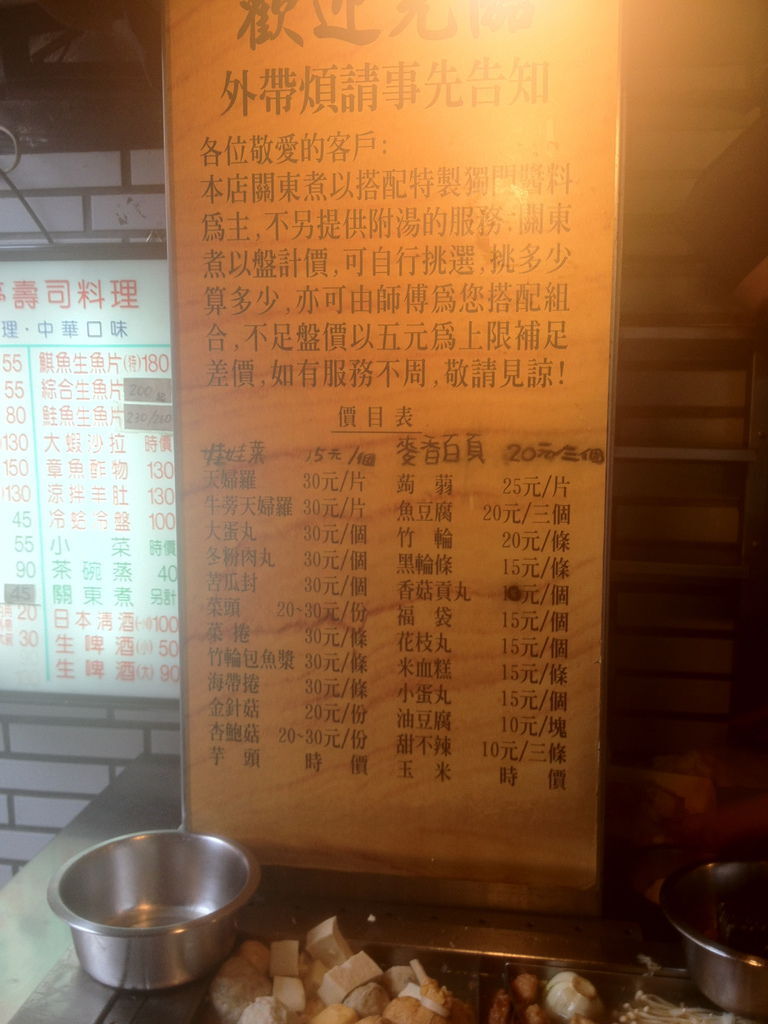 歡迎光臨
外帶煩請事先告知
各位敬愛的客戶:
本店關東煮以搭配特製獨門醬料
爲主,不另提供附湯的服務.關東
煮以盤計價,可自行挑選,挑多少
算多少,亦可由師傅爲您搭配組
合,不足盤價以五元爲上限補足
差價,如有服務不周,敬請見諒!
價目表
娃娃菜 15元/個 麥香百頁 20元/三個
天婦羅 30元/片 蒟蒻 25元/片
牛蒡天婦羅 30元/片 魚豆腐 20元/三個
大蛋丸 30元/個 竹輪 20元/條
冬粉肉丸 30元/個 黑輪條 15元/條
苦瓜封 30元/個 香菇貢丸 元/個
菜頭 20~30元/份 福袋 15元/個
菜捲 30元/條 花枝丸 15元/個
竹輪包魚漿 30元/條 米血糕 15元/條
海帶捲 30元/條 小蛋丸 15元/個
金針菇 20元/份 油豆腐 10元/塊
杏鮑菇 20~30元/份 甜不辣 10元/三條
芋頭 時價 玉米 時價
壽司料理
理·中華口味
55 鯕魚生魚片(特)180
55 綜合生魚片 200
80 鮭魚生魚片 230/260
130 大蝦沙拉 時價
150 章魚酢物 130
130 涼拌羊肚 130
45 冷蛤冷盤 100
55 小菜 時價
90 茶碗蒸 40
45 關東煮 另計
20 日本清酒(小)100
30 生啤酒(小) 50
生啤酒(大) 90